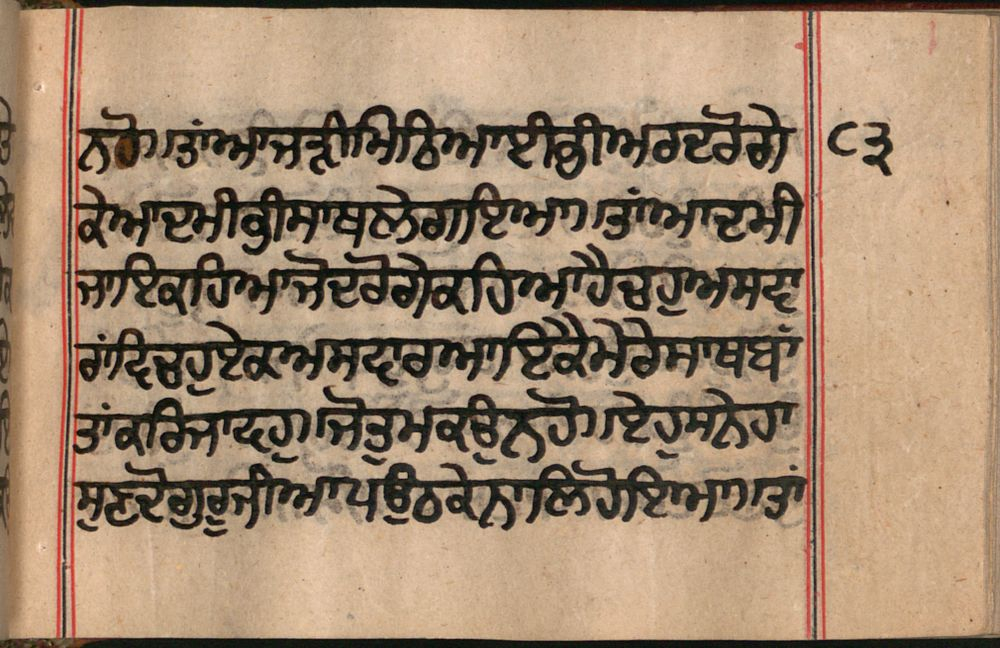 ਨਹੋ।।ਤਾਂਆਜਕੀਮਿਠਿਆਈਭੀਅਰਦਰੋਗੇ
ਕੇਆਦਮੀਭੀਸਾਥਲੇਗਇਆ।।ਤਾਂਆਦਮੀ
ਜਾਇਕਹਿਆਜੋਦਰੋਗੇਕਹਿਆਹੈਚਹੁਅਸਵਾ
ਰਾਂਵਿਚਹੁਏਕਅਸਵਾਰਆਇਕੈਮੇਰੇਸਾਥਬਾਂ
ਤਾਂਕਰਿਜਾਵਹੁ।।ਜੋਤੁਮਕਉਨਹੋ।।ਏਹੁਸਨੇਹਾ
ਸੁਣਦੇਗੁਰੂਜੀਆਪਉਠਕੇਨਾਲਿਹੋਇਆ।।ਤਾਂ
੮੩